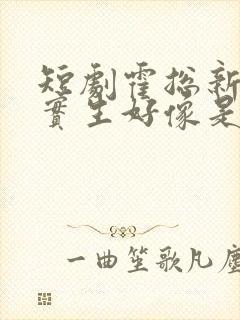 短劇霍総新
實生好像是
一曲笙歌凡塵